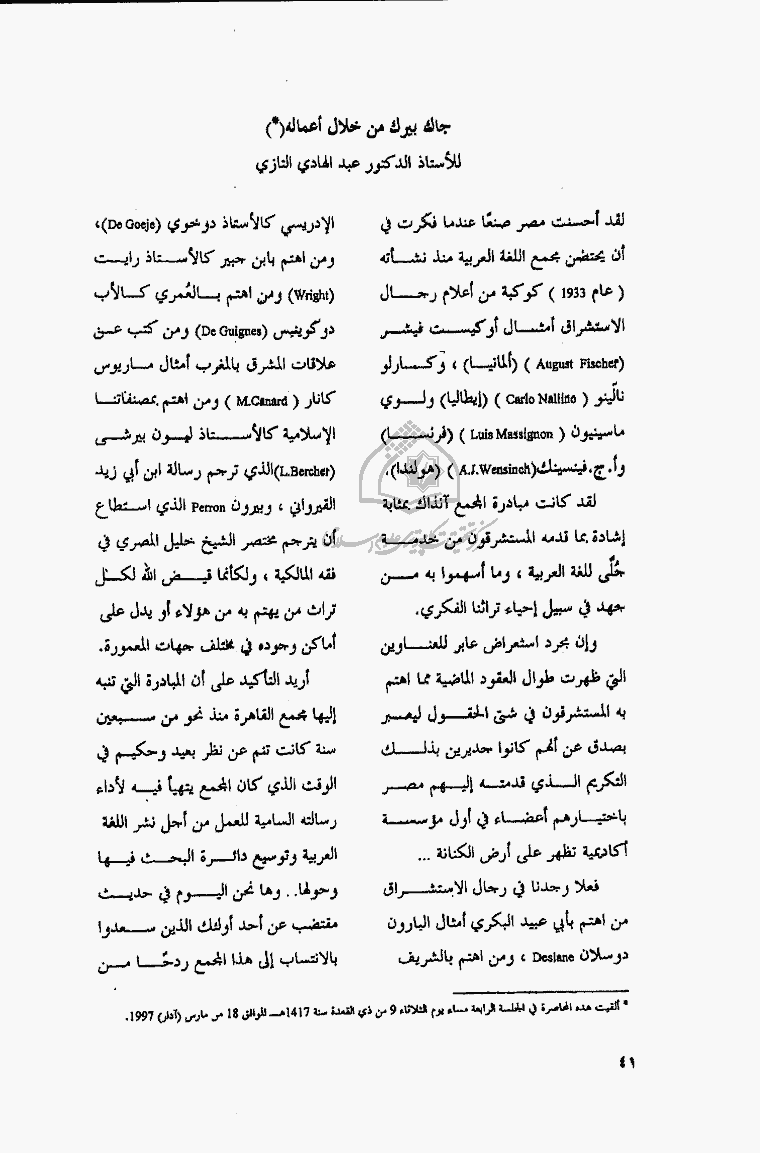 جاك بيرك من خلال أعماله(*)
للأستاذ الدكتور عبد الهادي التازي
لقد أحسنت مصر صنعًا عندما فكرت في
أن يحتضن مجمع اللغة العربية منذ نشــأته
( عام 1933 ) كوكبة من أعلام رجــال
الاستشراق أمثــال أوكيســت فيشــر
(August Fischer ) (ألمانيــا) ، وكــارلو
نالّينو ( Carlo Nallino ) (إيطاليا) ولــوي
ماسينيون ( Luis Massignon ) (فرنســا)
وأ.ج.فينسينك(A.J.Wensinch ) (هولندا).
لقد كانت مبادرة المجمع آنذاك بمثابة
إشادة بما قدمه المستشرقون من خدمــة
جُلَّى للغة العربية ، وما أسهموا به مــن
جهد في سبيل إحياء تراثنا الفكري.
وإن مجرد استعراض عابر للعنــاوين
التي ظهرت طوال العقود الماضية مما اهتم
به المستشرقون في شتى الحقــول ليعــبر
بصدق عن أنهم كانوا جديرين بذلــك
التكريم الــذي قدمتــه إليــهم مصــر
باختيــارهم أعضــاء في أول مؤسســة
أكاديمية تظهر على أرض الكنانة ...
فعلا وجدنا في رجال الاستشــراق
من اهتم بأبي عبيد البكري أمثال البارون
دوسلان Deslane ، ومن اهتم بالشريف
الإدريسي كالأستاذ دوخوي (De Goeje)،
ومن اهتم بابن جبير كالأســتاذ رايــت
(Wright) ومن اهتم بــالعُمري كــالأب
دوكوينيس (De Guignes) ومن كتب عــن
علاقات المشرق بالمغرب أمثال مــاريوس
كانار ( M.Canard ) ومن اهتم بمصنفاتنــا
الإسلامية كالأســتاذ ليــون بيرشــى
(L.Bercher)الذي ترجم رسالة ابن أبي زيد
القيرواني ، وبيرون Perron الذي اســتطاع
أن يترجم مختصر الشيخ خليل المصري في
فقه المالكية ، ولكأنما قيــض الله لكــل
تراث من يهتم به من هؤلاء أو يدل على
أماكن وجوده في مختلف جهات المعمورة.
أريد التأكيد على أن المبادرة التي تنبه
إليها مجمع القاهرة منذ نحو من ســبعين
سنة كانت تنم عن نظر بعيد وحكيــم في
الوقت الذي كان المجمع يتهيأ فيــه لأداء
رسالته السامية للعمل من أجل نشر اللغة
العربية وتوسيع دائــرة البحــث فيــها
وحولها.. وها نحن اليــوم في حديــث
مقتضب عن أحد أولئك الذين ســعدوا
بالانتساب إلى هذا المجمع ردحًــا مــن
* ألقيت هذه المحاضرة في الجلسة الرابعة مساء يوم الثلاثاء 9 من ذي القعدة سنة 1417هــ الموافق 18 من مارس (آذار) 1997.
٤١